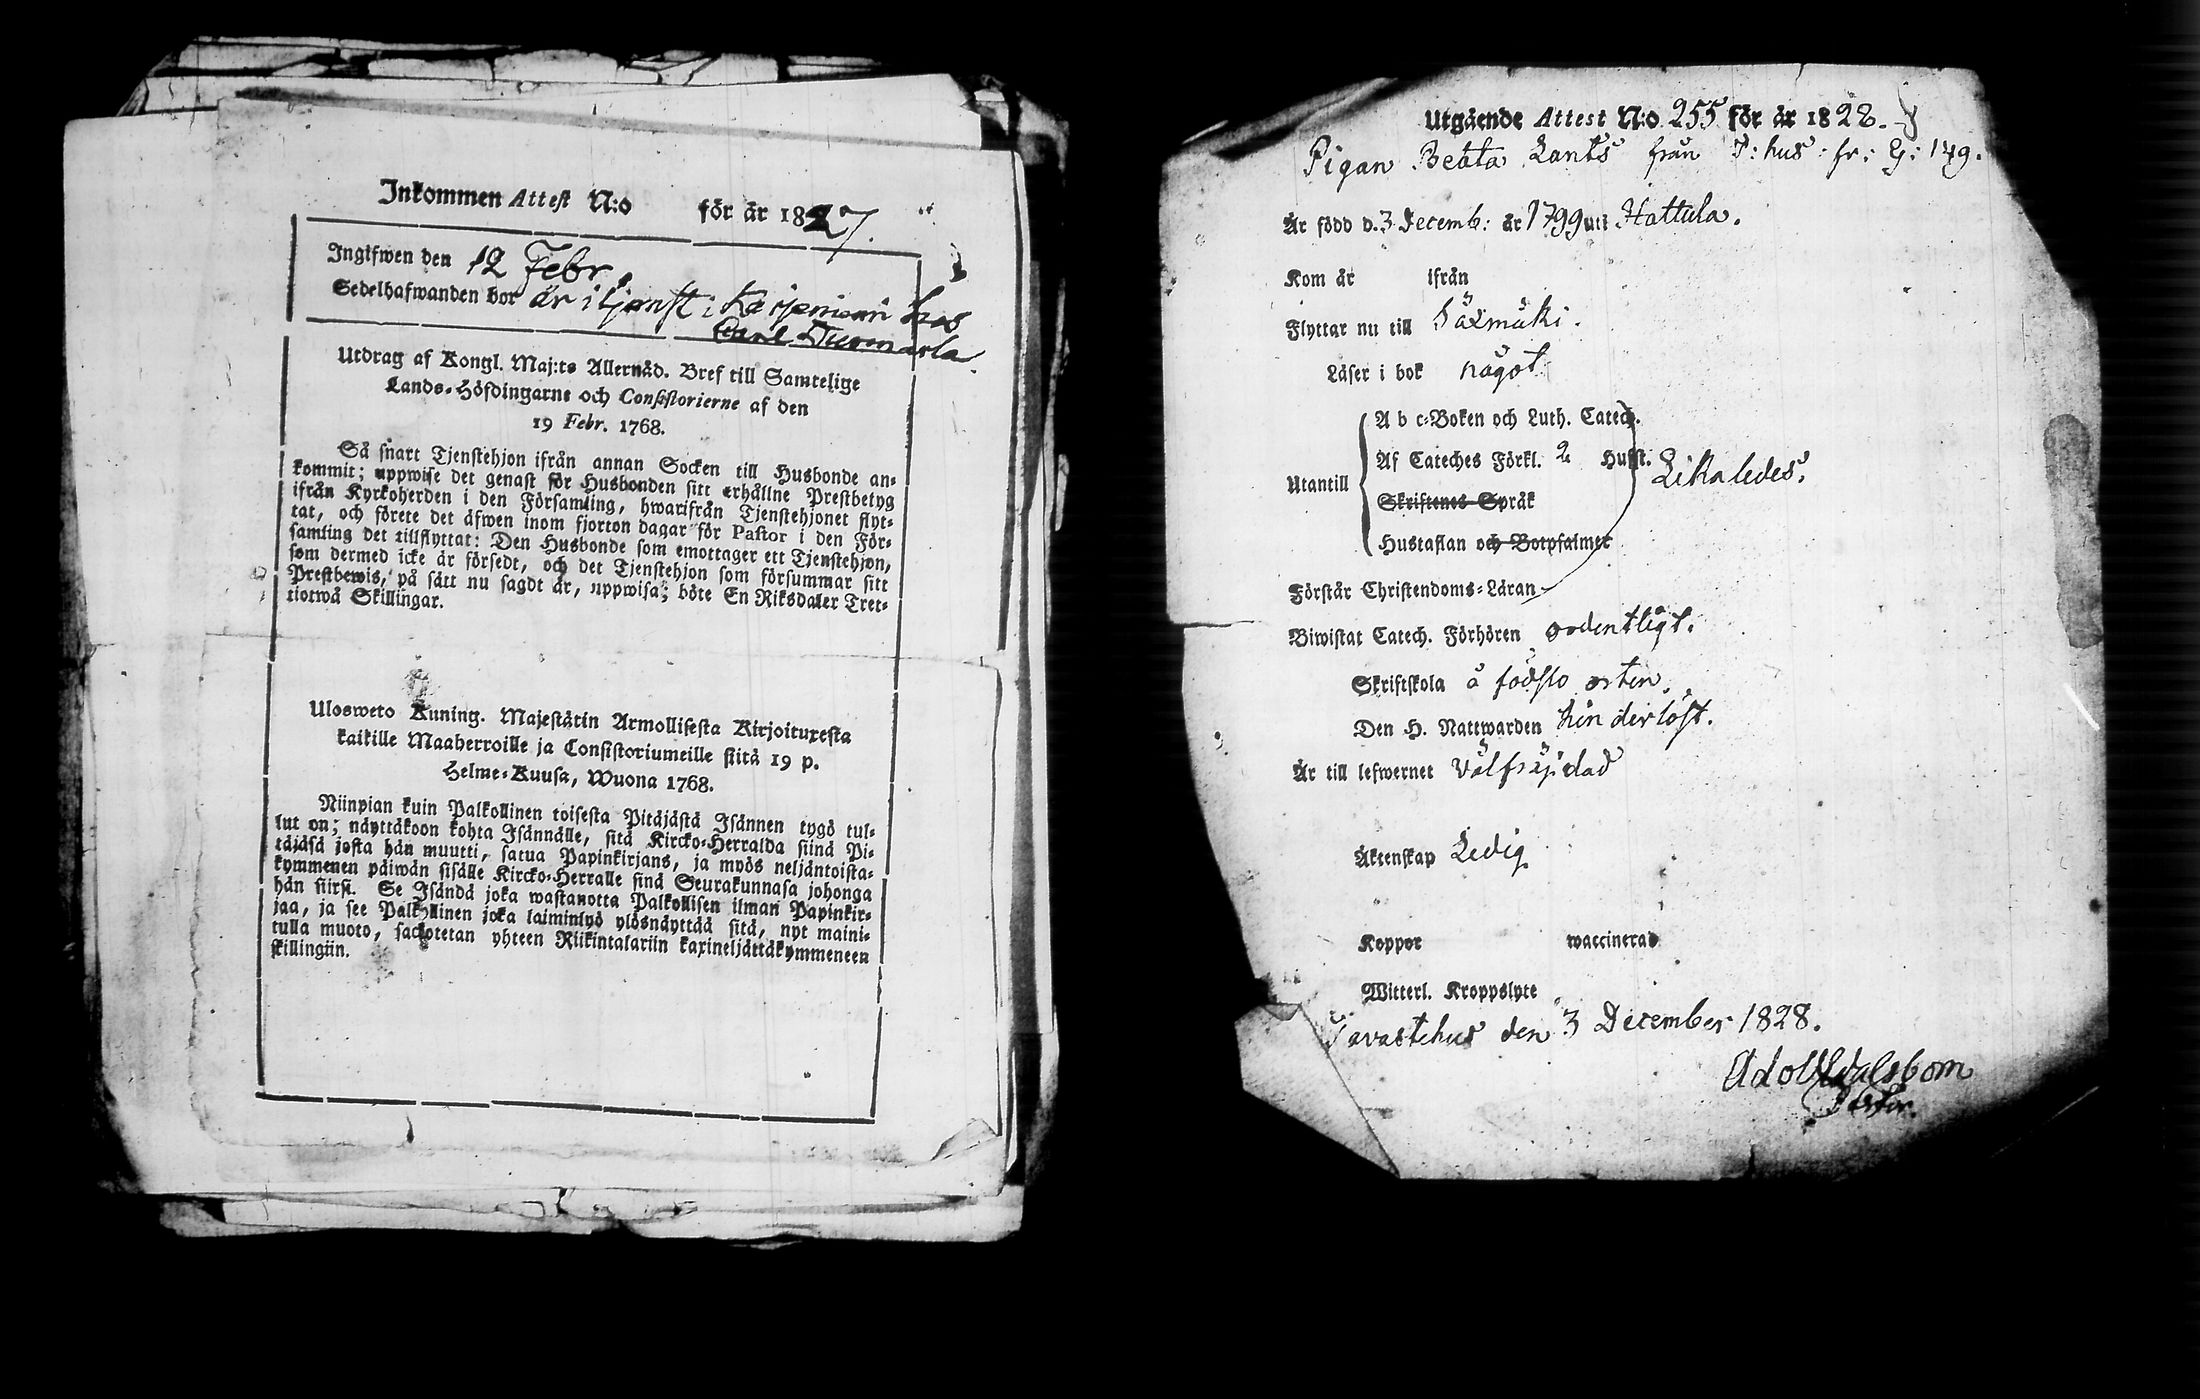 Inkommen Attest N:o för år 1827.
Ingifwen den 12 Febr.
Sedelhafwanden bor är i tjenst i hos
Carl
Utdrag af Kongl. Maj:ts Allernåd. Bref till Samtelige
Lands-Höfdingarne och Consistorierne af den
19 Febr. 1768.
Så snart Tjenstehjon ifrån annan Socken till Husbonde an-
kommit; uppwise det genast för Husbonden sitt erhållne Prestbetyg
ifrån Kyrkoherden i den Församling, hwarifrån Tjenstehjonet flyt-
tat, och förete det äfwen inom fjorton dagar för Pastor i den För-
samling det tillflyttat: Den Husbonde som emottager ett Tjenstehjon,
som dermed icke är försedt, och det Tjenstehjon som försummar sitt
Prestbewis, på sätt nu sagdt är, uppwisa; böte En Riksdaler Tret-
tiotwå Skillingar.
Ulosweto Kuning. Majestätin Armollisesta Kirjoituxesta
kaikille Maaherroille ja Consistoriumeille siitä 19 p.
Helme-Kuusa, Wuona 1768.
Niinpian kuin Palkollinen toisesta Pitäjästä Isännen tygö tul-
lut on; näyttäkoon kohta Isännälle, sitä Kircko-Herralda siinä Pi-
täjäsä josta hän muutti, satua Papinkirjans, ja myös neljäntoista-
kymmenen päiwän sisälle Kircko-Herralle sinä Seurakunnasa johonga
hän siirsi. Se Isändä joka wastanotta Palkollisen ilman Papinkir-
jaa, ja see Palkollinen joka laiminlyö ylösnäyttää sitä, nyt maini-
tulla muoto, sackotetan yhteen Riikintalariin kaxineljättäkymmeneen
skillingiin.
Utgående Attest N:o 255 för år 1828.
Pigan Beata Lants från T: hus: fr: G: 149.
Är född d. 3 Decemb: år 1799 uti Hattula.
Kom år ifrån
Flyttar nu till Säxmäki.
Läser i bok något
A b c-Boken och Luth. Catech.
Af Cateches Förkl. 2 Hufst. Likaledes.
Utantill
Skriftenes Språk
Hustaflan och Botpsalmer
Förstår Christendoms-Läran
Biwistat Catech. Förhören ordentligt.
Skriftskola å födslo orten.
Den H. Nattwarden hinderlöst.
Är till lefwernet välfräjdad
Äktenskap Ledig
Koppor waccinerad
Witterl. Kroppslyte
Tavastehus den 3 December 1828.
Adolf
Pastor.